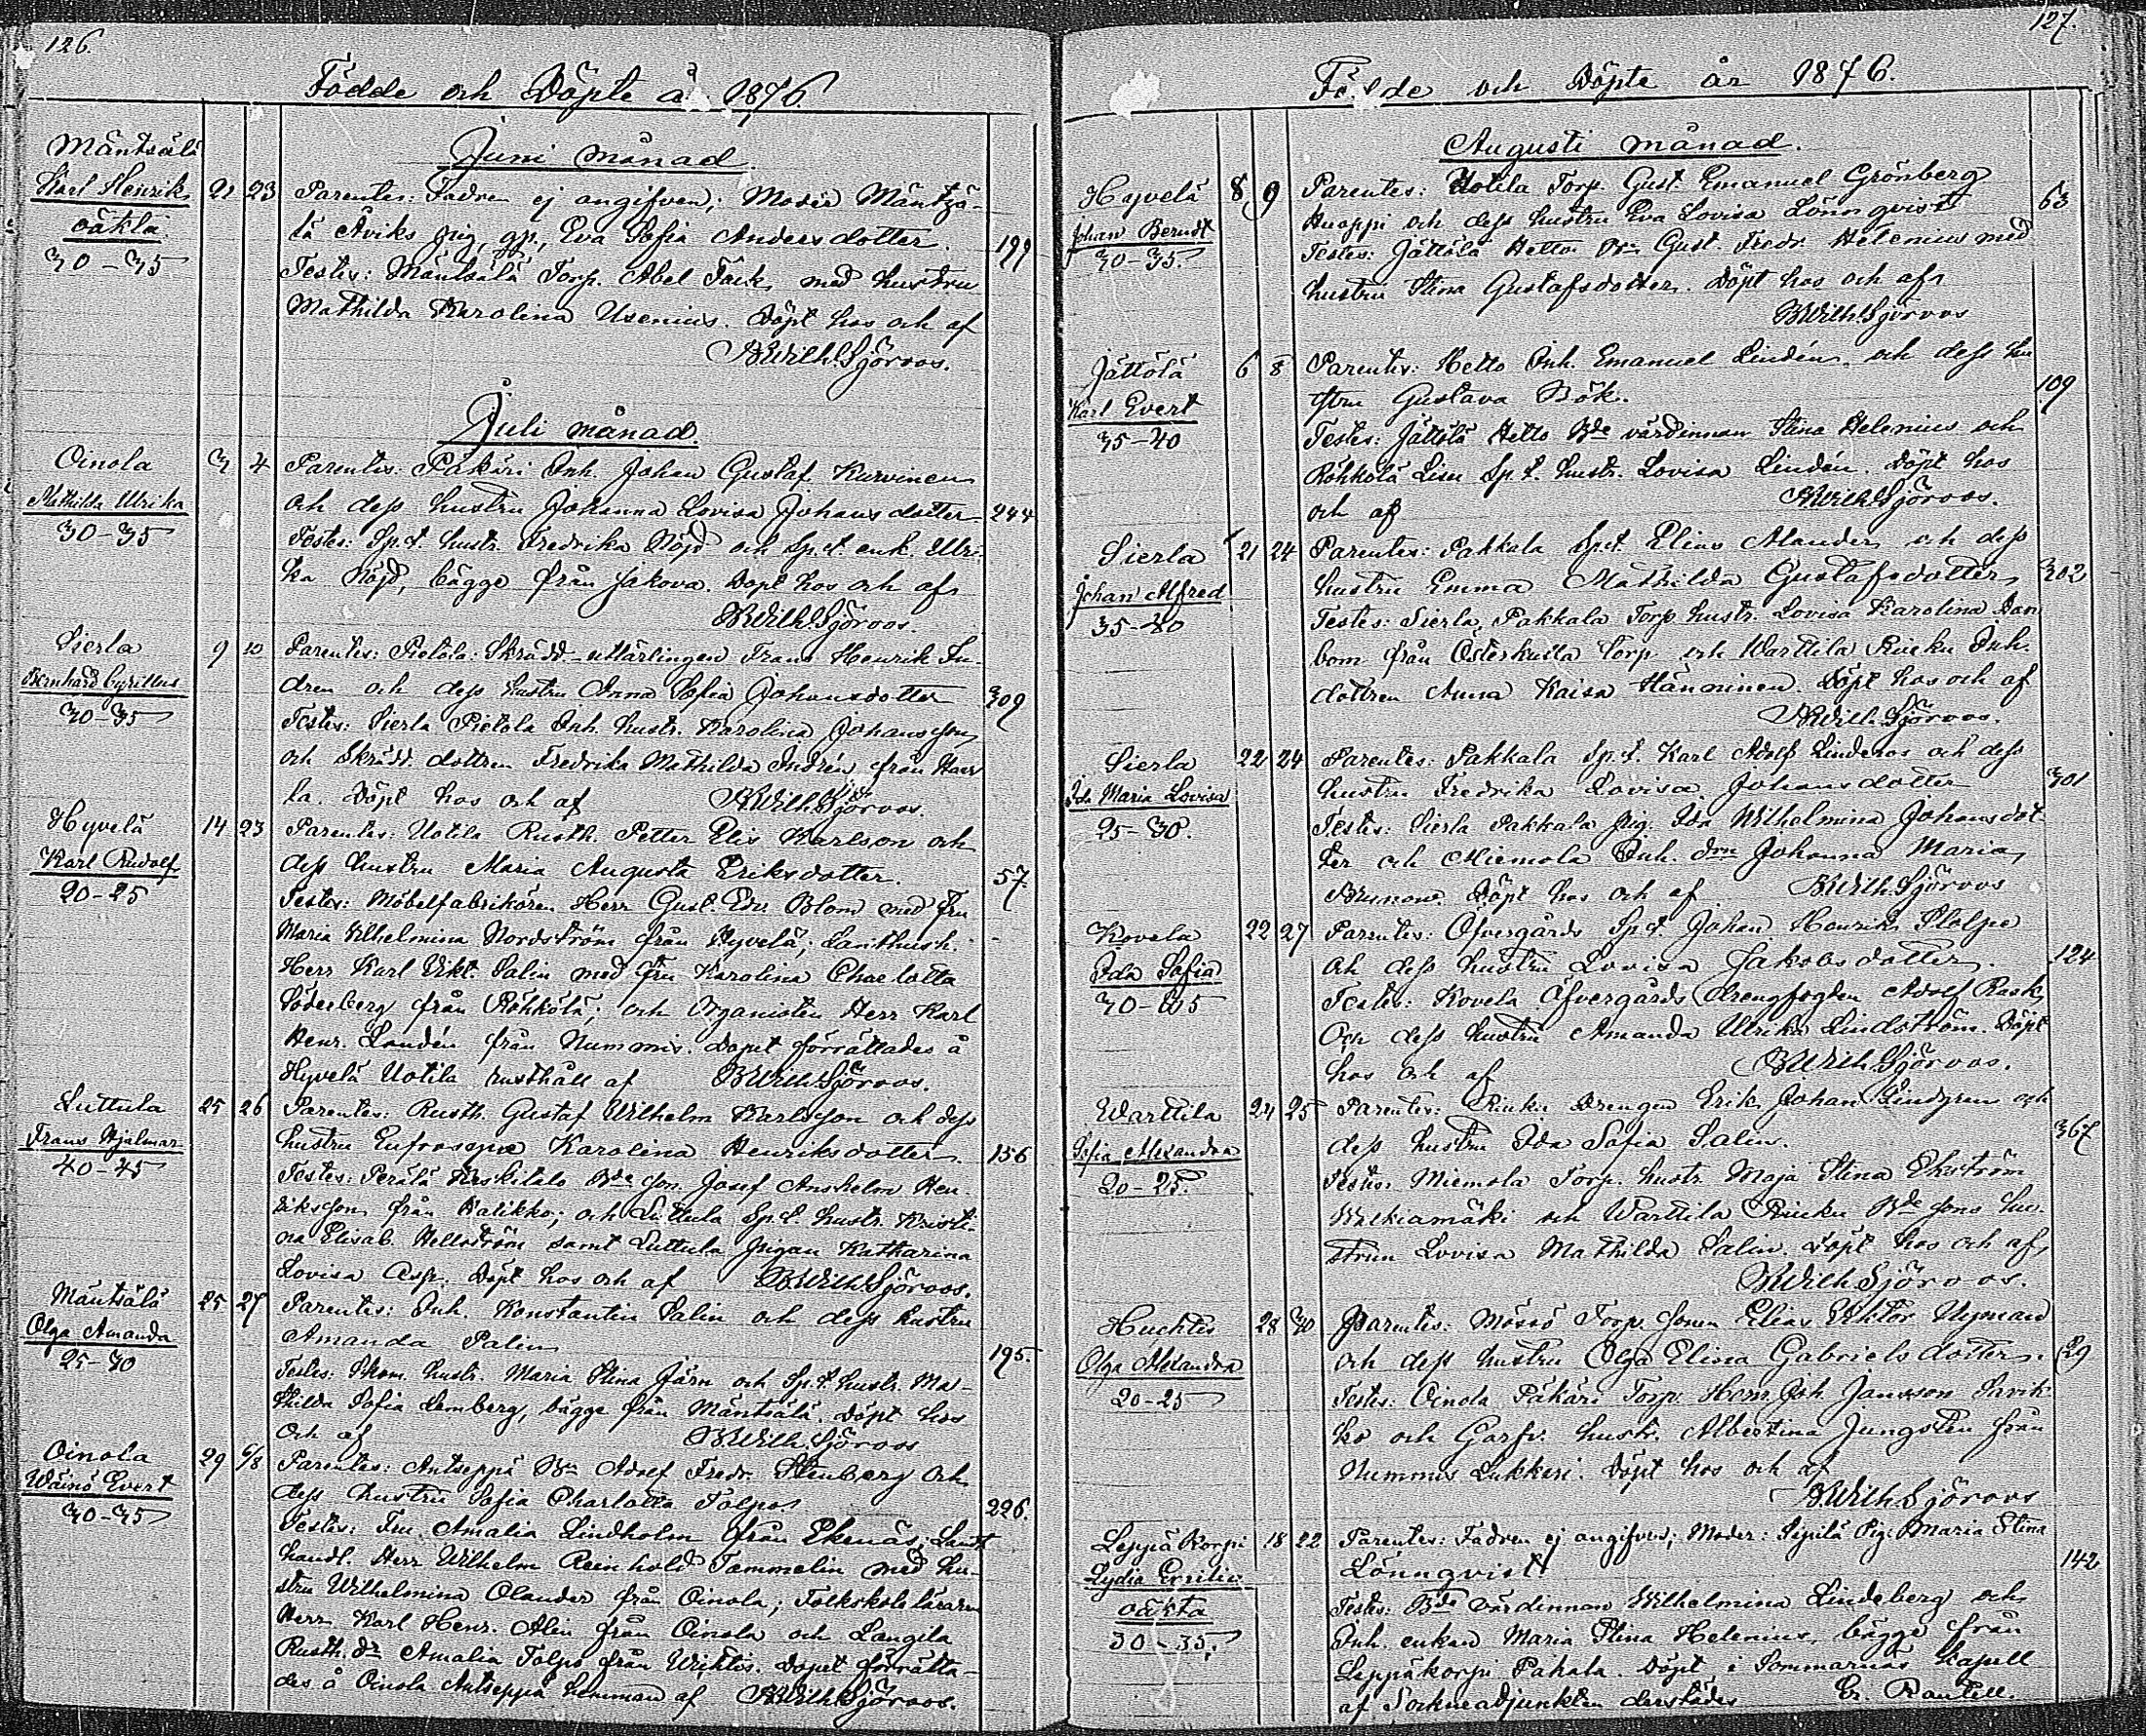 126.
Födde och Döpte å 1876.
Juni månad.
Mäntsälä
Karl Henrik
oäkta
30-35
21 23
Parentes: Fadren ej angifven; Moder Mäntzä-
lä Åviks pig, gp., Eva Sofia Andersdotter.
199
Testes: Mäntsälä Torp. Abel Fack, med hustru
Mathilda Karolina Usenius. Döpt hos och af
BWilh.Sjöroos.
Juli månad.
Oinola
Mathilda Ulrika
30-35
3 4
Parentes: Päkäri Inh. Johan Gustaf Kurvinen
och dess hustru Johanna Lovisa Johansdotter.
244
Testes: Sp.t. hustr. Fredrika Nöjd och Sp.t. enk. Ulri-
ka Nöjd, bägge från Jakova. Döpt hos och af
BWilh.Sjöroos.
Sierla
Bernhard Cyrillus
30-35
9 10
Parentes: Pietola: Skrädd.-utlärlingen Frans Henrik In-
dren och dess hustru Anna Sofia Johansdotter
309
Testes: Sierla Pietola Inh. hustr. Karolina Johansson,
och Skrädd. dottren Fredrika Mathilda Indrén från Haar
la. Döpt hos och af BWilh.Sjöroos.
Hyvelä
Karl Rudolf
20-25
14 23
Parentes: Uotila Rusth. Petter Elis Karlson och
dess hustru Maria Augusta Eriksdotter.
57.
Testes: Möbelfabrikören Herr Gust. Edv. Blom med fru
Maria Wilhelmina Nordström från Hyvelä;
Herr Karl Vikt. Salin med fru Karolina Charlotta
Söderberg från Röhkölä; och Organisten Herr Karl
Henr. Landén från Nummis. Dopet förrättades å
Hyvelä Uotila rusthåll af BWilh.Sjöroos.
Luttula
Frans Hjalmar
40-45
25 26
Parentes: Rusth. Gustaf Wilhelm Karlsson och dess
hustru Eufrosyne Karolina Henriksdotter.
156
Testes: Perälä Keskitalo Bde son. Josef Anshelm Hen-
riksson från Halikko; och Luttula Sp.t. hustr. Kristi-
na Elisab. Hellström samt Luttula pigan Katharina
Lovisa Asp. Döpt hos och af BWilh.Sjöroos.
Mäntsälä
Olga Amanda
25-30
25 27
Parentes: Inh. Konstantin Salin och dess hustru
Amanda Salin
195.
Testes: Skom. hustr. Maria Stina Järn och Sp.t. hustr. Ma-
thilda Sofia Lemberg, bägge från Mäntsälä. Döpt hos
och af BWilh.Sjöroos
Oinola
Wäinö Evert
30-35
29 6/8
Parentes: Antseppä Bn Adolf Fredr. Stenberg och
dess hustru Sofia Charlotta Talpo
226.
Testes: Fru Amalia Lindholm från Ekenäs; Landt
handl. Herr Wilhelm Reinhold Tammelin med hu-
stru Wilhelmina Olander från Oinola; Folkskoleläraren
Herr Karl Henr. Alin från Oinola och Langila
Rusth. dr Amalia Talpo från Wichtis. Dopet förrätta-
des å Oinola Antseppä hemman af BWilh.Sjöroos.
127.
Födde och Döpte år 1876.
Augusti månad.
Hyvelä
Johan Berndt
30-35.
8 9
Parentes: Uotila Torp. Gust. Emanuel Grönberg
Huoppi och dess hustru Eva Lovisa Lönnqvist
63
Testes: Jättölä Hetto Bn Gust. Fredr. Helenius med
hustru Stina Gustafsdotter. Döpt hos och af
BWilh.Sjöroos
Jättölä
Karl Evert
35-40
6 8
Parentes: Hetto Inh. Emanuel Lindén och dess hu
stru Gustava Bök.
109
Testes: Jättölä Hetto Bde värdinnan Stina Helenius och
Röhkölä Lisu Sp.t. hustr. Lovisa Lindén. Döpt hos
och af BWilh.Sjöroos.
Sierla
Johan Alfred
35-40
21 24
Parentes: Pakkala Sp.t. Elias Alander och dess
hustru Emma Mathilda Gustafsdotter
302
Testes: Sierla, Pakkala Torp. hustr. Lovisa Karolina Dan
bom från Österkulla torp och Warttila Rieku Inh.
dottren Anna Kaisa Hänninen. Döpt hos och af
BWilh.Sjöroos.
Sierla
Ida Maria Lovisa
25-30.
22 24
Parentes: Pakkala Sp.t. Karl Adolf Lindroos och dess
hustru Fredrika Lovisa Johansdotter
301
Testes: Sierla Pakkala pig. Ida Wilhelmina Johansdot-
ter och Miemola Inh. drn Johanna Maria
Brunow. Döpt hos och af BWilh.Sjöroos
Kovela
Ida Sofia
22 27
Parentes: Öfvergårds Sp.t. Johan Henrik Stolpe
och dess hustru Lovisa Jakobsdotter.
124
Testes: Kovela Öfvergårds drengfogden Adolf Rask
och dess hustru Amanda Ulrika Lindström. Döpt
hos och af BWilh.Sjöroos.
Warttila
Sofia Alexandra
20-25.
24 25
Parentes: Rieku Drengen Erik Johan Lindgren och
dess hustru Ida Sofia Salin.
367
Testes: Miemola Torp. hustr. Maja Stina Ekström
Walkiamäki och Warttila Rieku Bde sons hu-
strun Lovisa Mathilda Salin. Döpt hos och af
BWilh.Sjöroos.
Huchtis
Olga Alexandra
20-25
28 30
Parentes: Mössö Torp. sonen Elias Viktor Nyman
och dess hustru Olga Elina Gabrielsdotter.
29
Testes: Oinola Päkäri Torp. Henr. Joh. Jansson Savik
ko och Garfv. hustr. Albertina Jungstén från
Nummis Lukkari. Döpt hos och af
BWilh.Sjöroos
Leppä Korpi
Lydia Emilia
oäkta
30-35.
18 22
Parentes: Fadren ej angifven; Moder: Sipilä Pig. Maria Stina
Lönnqvist
142
Testes: Bde värdinnan Wilhelmina Lindeberg och
Inh. enkan Maria Stina Helenius, bägge från
Leppäkorpi Pahala. Döpt i Sommarnäs kapell
af Sockneadjunkten derstädes Cr. Rantell.